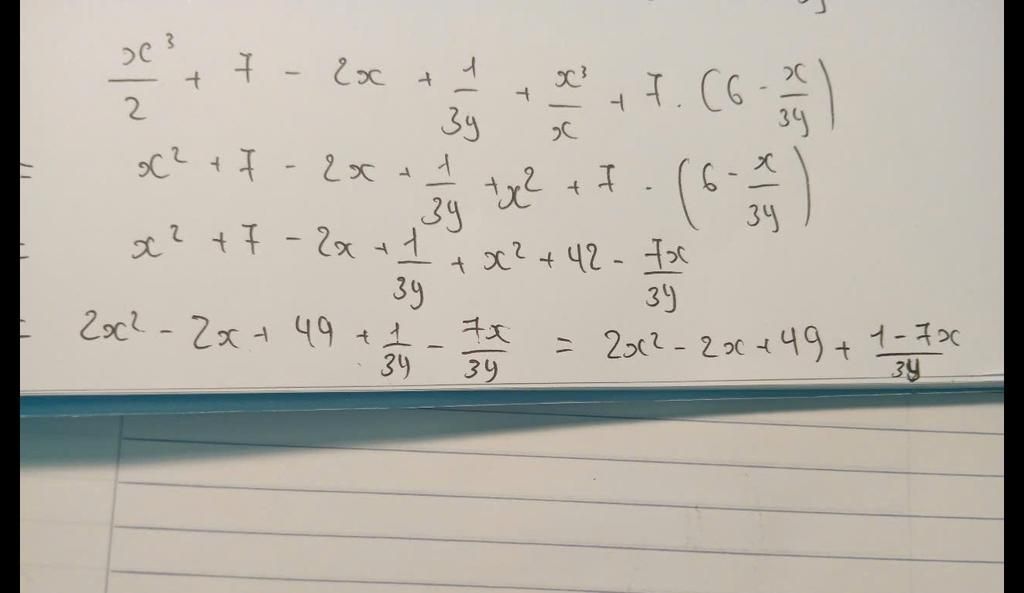 x³/2 + 7 - 2x + 1/3y + x³/x + 7 . (6 - x/3y)
= x² + 7 - 2x + 1/3y + x² + 7 . (6 - x/3y)
= x² + 7 - 2x + 1/3y + x² + 42 - 7x/3y
= 2x² - 2x + 49 + 1/3y - 7x/3y = 2x² - 2x + 49 + 1-7x/3y